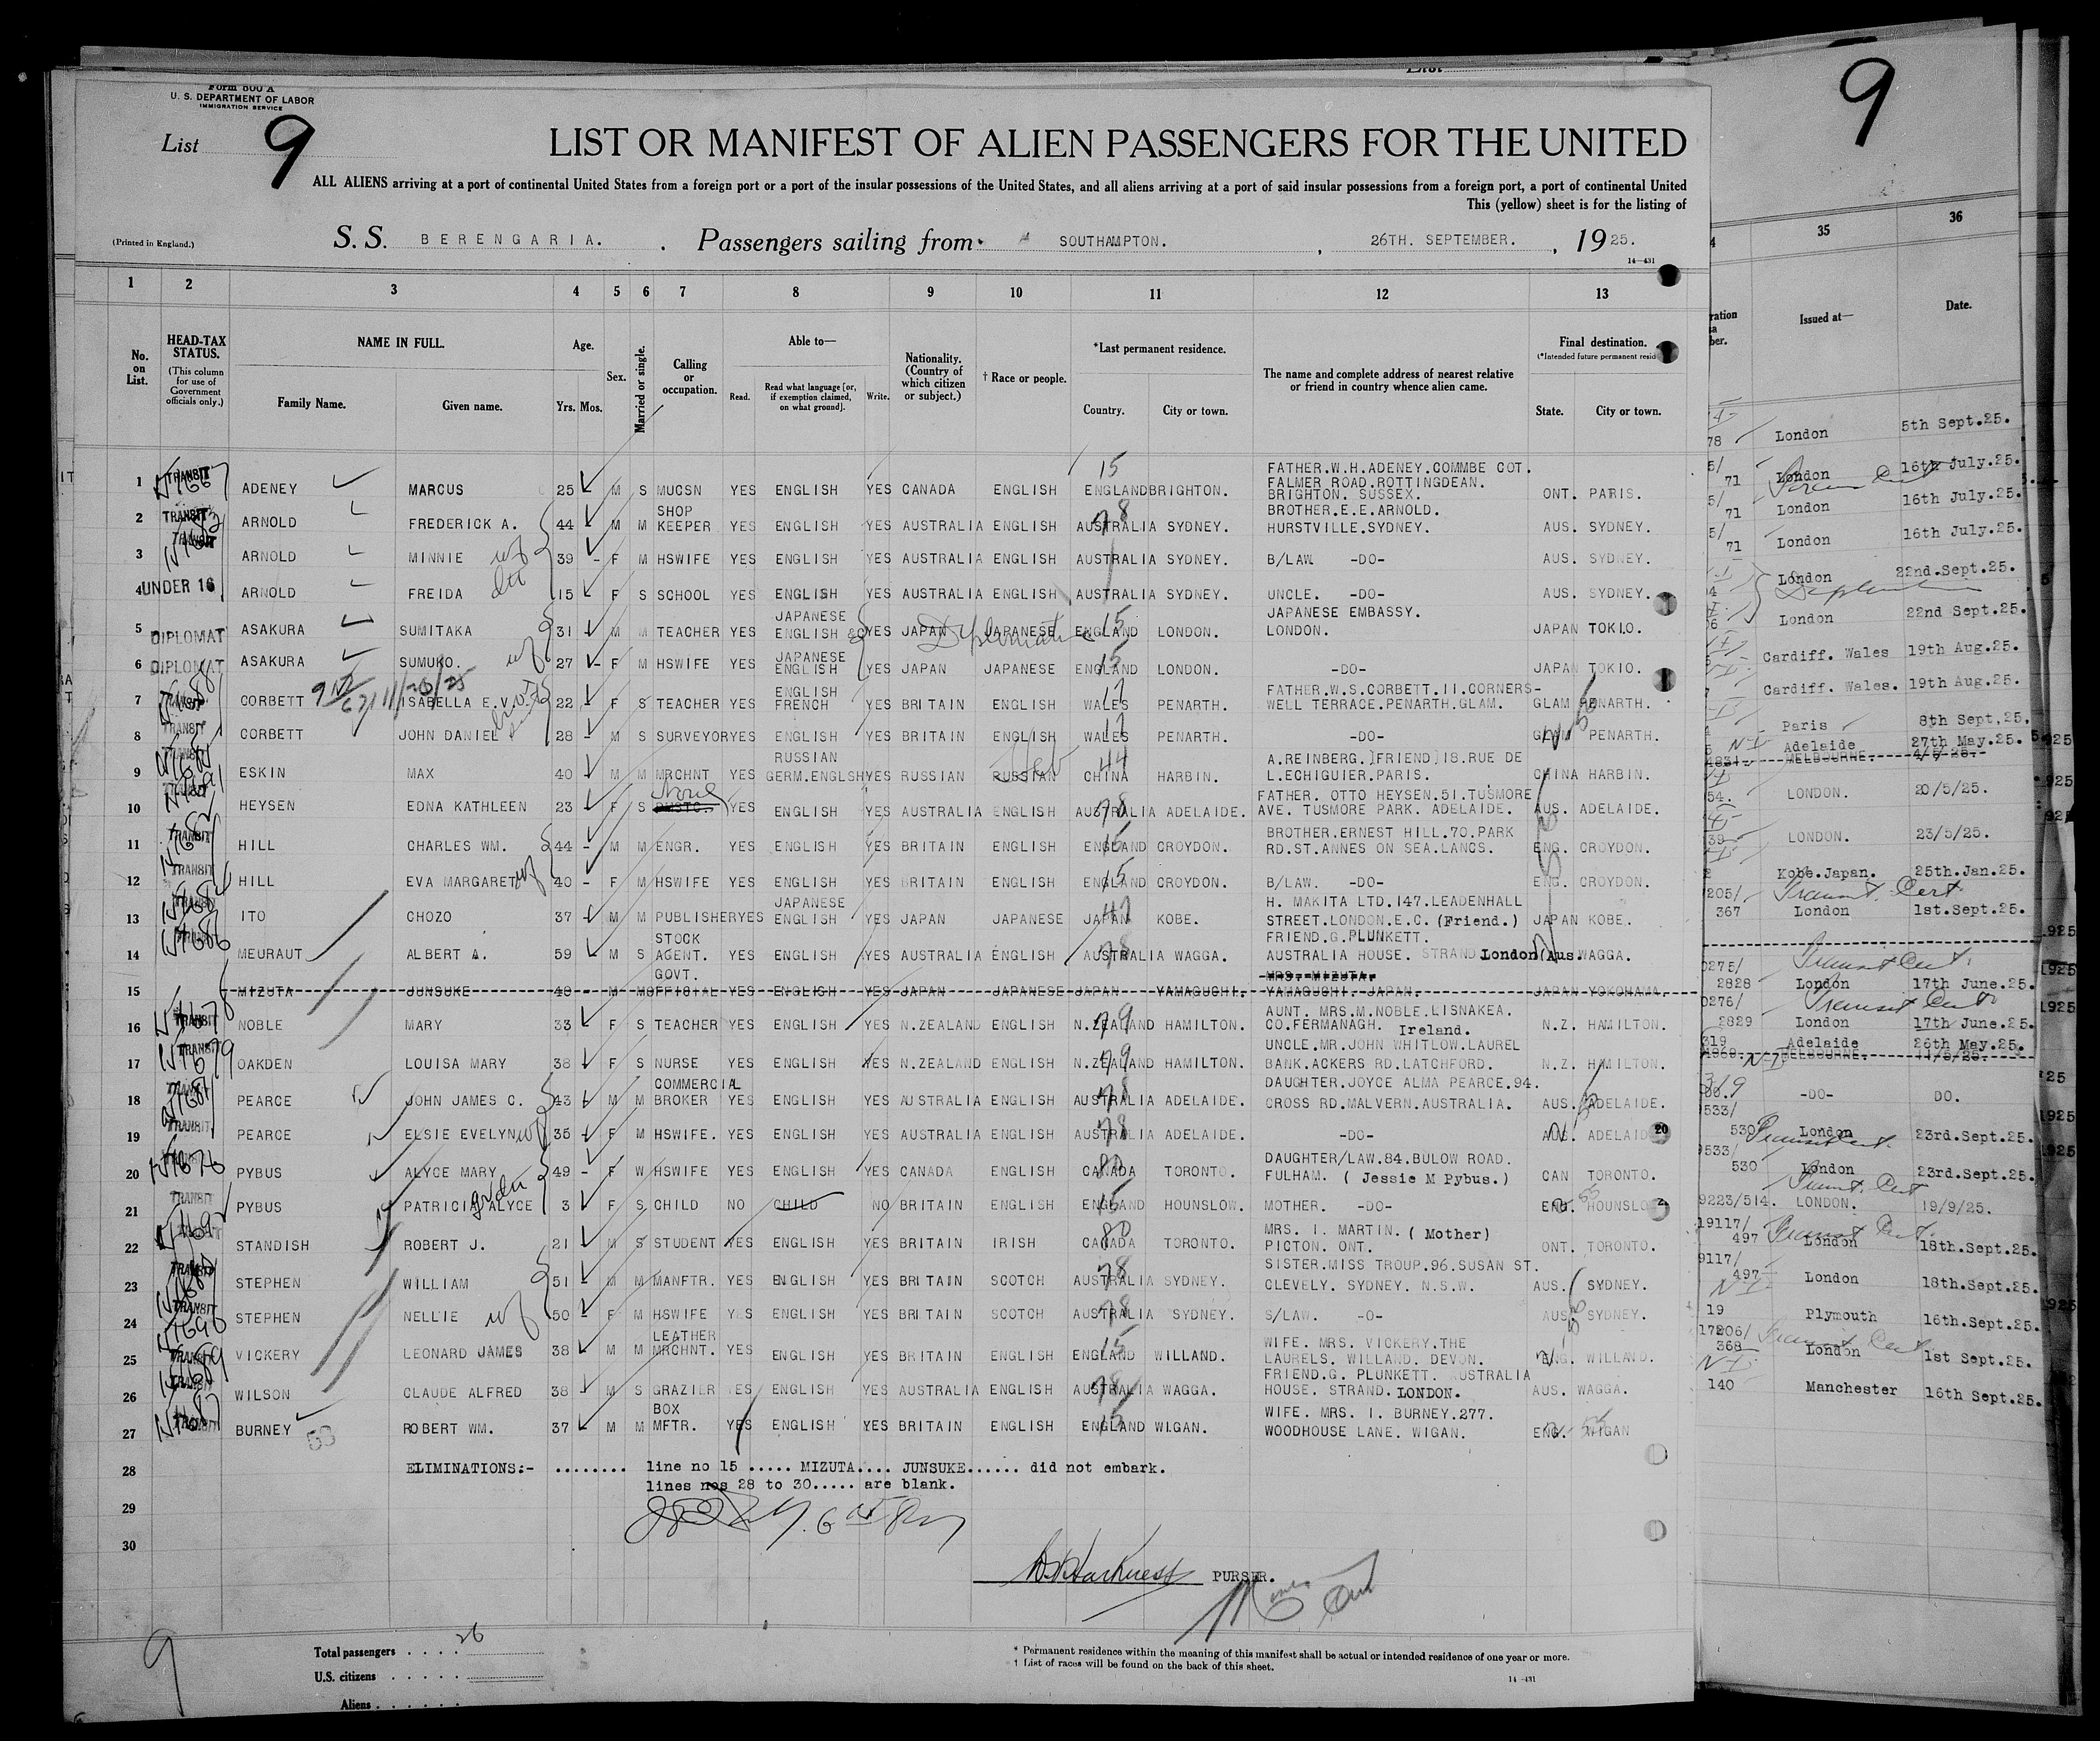 Form 500 A
U. S. DEPARTMENT OF LABOR
IMMIGRATION SERVICE
List 9
LIST OR MANIFEST OF ALIEN PASSENGERS FOR THE UNITED
ALL ALIENS arriving at a port of continental United States from a foreign port or a port of the insular possessions of the United States, and all aliens arriving at a port of said insular possessions from a foreign port, a port of continental United
This (yellow) sheet is for the listing of
(Printed in England.)
S. S. BERENGARIA. . Passengers sailing from SOUTHAMPTON. , 26TH. SEPTEMBER. , 19 25.
14—431
1 2 3 4 5 6 7 8 9 10 11 12 13
No. on List. HEAD-TAX STATUS. (This column for use of Government officials only.) NAME IN FULL. Family Name. Given name. Age. Yrs. Mos. Sex. Married or single. Calling or occupation. Able to— Read. Read what language [or, if exemption claimed, on what ground]. Write. Nationality. (Country of which citizen or subject.) † Race or people. *Last permanent residence. Country. City or town. The name and complete address of nearest relative or friend in country whence alien came. Final destination. (*Intended future permanent resid State. City or town.
1 TRANSIT ADENEY MARCUS 25 M S MUCSN YES ENGLISH YES CANADA ENGLISH 15 ENGLAND BRIGHTON. FATHER.W.H.ADENEY.COMMBE COT. FALMER ROAD.ROTTINGDEAN. BRIGHTON. SUSSEX. ONT. PARIS.
2 TRANSIT ARNOLD FREDERICK A. 44 M M SHOP KEEPER YES ENGLISH YES AUSTRALIA ENGLISH 78 AUSTRALIA SYDNEY. BROTHER.E.E.ARNOLD. HURSTVILLE.SYDNEY. AUS. SYDNEY.
3 TRANSIT ARNOLD MINNIE wf 39 - F M HSWIFE YES ENGLISH YES AUSTRALIA ENGLISH AUSTRALIA SYDNEY. B/LAW -DO- AUS. SYDNEY.
4 UNDER 16 ARNOLD FREIDA 15 F S SCHOOL YES ENGLISH YES AUSTRALIA ENGLISH AUSTRALIA SYDNEY. UNCLE. -DO- AUS. SYDNEY.
5 DIPLOMAT ASAKURA SUMITAKA 31 - M M TEACHER YES JAPANESE ENGLISH &C YES JAPAN JAPANESE Diplomatic 15 ENGLAND LONDON. JAPANESE EMBASSY. LONDON. JAPAN TOKIO.
6 DIPLOMAT ASAKURA SUMUKO. wf 27 - F M HSWIFE YES JAPANESE ENGLISH YES JAPAN JAPANESE 15 ENGLAND LONDON. -DO- JAPAN TOKIO.
7 TRANSIT CORBETT ISABELLA E.V. 22 - F S TEACHER YES ENGLISH FRENCH YES BRITAIN ENGLISH 17 WALES PENARTH. FATHER.W.S.CORBETT.11.CORNERS- WELL TERRACE.PENARTH.GLAM. GLAM PENARTH.
8 TRANSIT CORBETT JOHN DANIEL 28 - M S SURVEYOR YES ENGLISH YES BRITAIN ENGLISH 17 WALES PENARTH. -DO- GLAM PENARTH.
9 TRANSIT ESKIN MAX 40 - M M MRCHNT YES RUSSIAN GERM.ENGLSH YES RUSSIAN RUSSIAN Heb 44 CHINA HARBIN. A.REINBERG.]FRIEND]18.RUE DE L.ECHIGUIER.PARIS. CHINA HARBIN.
10 TRANSIT HEYSEN EDNA KATHLEEN 23 F S None YES ENGLISH YES AUSTRALIA ENGLISH 78 AUSTRALIA ADELAIDE. FATHER. OTTO HEYSEN.51.TUSMORE AVE. TUSMORE PARK. ADELAIDE. AUS. ADELAIDE.
11 TRANSIT HILL CHARLES WM. 44 - M M ENGR. YES ENGLISH YES BRITAIN ENGLISH 15 ENGLAND CROYDON. BROTHER.ERNEST HILL.70.PARK RD.ST.ANNES ON SEA.LANCS. ENG. CROYDON.
12 TRANSIT HILL EVA MARGARET wf 40 - F M HSWIFE YES ENGLISH YES BRITAIN ENGLISH 15 ENGLAND CROYDON. B/LAW. -DO- ENG. CROYDON.
13 TRANSIT ITO CHOZO 37 M M PUBLISHER YES JAPANESE ENGLISH YES JAPAN JAPANESE JAPAN KOBE. H. MAKITA LTD.147.LEADENHALL STREET.LONDON.E.C. (Friend.) JAPAN KOBE.
14 TRANSIT MEURAUT ALBERT A. 59 M S STOCK AGENT. YES ENGLISH YES AUSTRALIA ENGLISH 78 AUSTRALIA WAGGA. FRIEND.G.PLUNKETT. AUSTRALIA HOUSE. STRAND London (Aus. WAGGA.
15 MIZUTA JUNSUKE 40 - M M GOVT. OFFICIAL YES ENGLISH YES JAPAN JAPANESE JAPAN YAMAGUCHI. MRS. MIZUTA. YAMAGUCHI. JAPAN. JAPAN YOKOHAMA.
16 TRANSIT NOBLE MARY 33 F S TEACHER YES ENGLISH YES N.ZEALAND ENGLISH 79 N.ZEALAND HAMILTON. AUNT. MRS.M.NOBLE.LISNAKEA. CO.FERMANAGH. Ireland. N.Z. HAMILTON.
17 TRANSIT OAKDEN LOUISA MARY 38 F S NURSE YES ENGLISH YES N.ZEALAND ENGLISH 79 N.ZEALAND HAMILTON. UNCLE.MR.JOHN WHITLOW.LAUREL BANK.ACKERS RD.LATCHFORD. N.Z. HAMILTON.
18 TRANSIT PEARCE JOHN JAMES C. 43 M M COMMERCIAL BROKER YES ENGLISH YES AUSTRALIA ENGLISH 78 AUSTRALIA ADELAIDE. DAUGHTER.JOYCE ALMA PEARCE.94. CROSS RD.MALVERN.AUSTRALIA. AUS. ADELAIDE.
19 TRANSIT PEARCE ELSIE EVELYN wf 35 - F M HSWIFE. YES ENGLISH YES AUSTRALIA ENGLISH 78 AUSTRALIA ADELAIDE. -DO- AUS. ADELAID
20 PYBUS ALYCE MARY 49 - F W HSWIFE YES ENGLISH YES CANADA ENGLISH 80 CANADA TORONTO. DAUGHTER/LAW.84.BULOW ROAD. FULHAM. ( Jessie M Pybus.) CAN TORONTO.
21 TRANSIT PYBUS PATRICIA ALYCE 3 F S CHILD NO CHILD NO BRITAIN ENGLISH 15 ENGLAND HOUNSLOW. MOTHER. -DO- ENG. HOUNSLO
22 TRANSIT STANDISH ROBERT J. 21 M S STUDENT YES ENGLISH YES BRITAIN IRISH 80 CANADA TORONTO. MRS. I. MARTIN. ( Mother) PICTON. ONT. ONT. TORONTO.
23 TRANSIT STEPHEN WILLIAM 51 M M MANFTR. YES ENGLISH YES BRITAIN SCOTCH 78 AUSTRALIA SYDNEY. SISTER.MISS TROUP.96.SUSAN ST. CLEVELY. SYDNEY. N.S.W. AUS. SYDNEY.
24 TRANSIT STEPHEN NELLIE wf 50 - F M HSWIFE YES ENGLISH YES BRITAIN SCOTCH 78 AUSTRALIA SYDNEY. S/LAW. -O- AUS SYDNEY.
25 TRANSIT VICKERY LEONARD JAMES 38 M M LEATHER MRCHNT. YES ENGLISH YES BRITAIN ENGLISH 15 ENGLAND WILLAND. WIFE. MRS. VICKERY.THE LAURELS. WILLAND. DEVON. ENG. WILLAND.
26 TRANSIT WILSON CLAUDE ALFRED 38 M S GRAZIER YES ENGLISH YES AUSTRALIA ENGLISH 78 AUSTRALIA WAGGA. FRIEND.G. PLUNKETT. AUSTRALIA HOUSE. STRAND. LONDON. AUS. WAGGA.
27 TRANSIT BURNEY 53 ROBERT WM. 37 M M BOX MFTR. YES ENGLISH YES BRITAIN ENGLISH 15 ENGLAND WIGAN. WIFE. MRS. I. BURNEY.277. WOODHOUSE LANE. WIGAN. ENG. WIGAN
28 ELIMINATIONS:- ........ line no 15 ..... MIZUTA.... JUNSUKE...... did not embark.
lines nos 28 to 30..... are blank.
29
30
PURSER.
Total passengers . . . . 26
U.S. citizens . . . . .
Aliens . . . . . .
9
* Permanent residence within the meaning of this manifest shall be actual or intended residence of one year or more.
† List of races will be found on the back of this sheet.
14—431
9
35 36
Issued at— Date.
78 London 5th Sept.25.
71 London 16th July.25.
71 London 16th July.25.
71 London 16th July.25.
London 22nd.Sept.25.
London 22nd Sept.25.
Cardiff. Wales 19th Aug.25.
Cardiff. Wales. 19th Aug.25.
Paris 8th Sept.25.
Adelaide 27th May.25.
MELBOURNE. 4/5/25.
54. LONDON. 20/5/25.
39 LONDON. 23/5/25.
Kobe.Japan. 25th.Jan.25.
205/ 367 London 1st.Sept.25. Transit. Cert
0275/ 2828 London 17th June.25. Transit Cert.
0276/ 2829 London 17th June.25. Transit Cert
319 Adelaide 26th May.25.
MELBOURNE.
319 -DO- DO.
533/ 530 London 23rd.Sept.25. Transit Cert.
9533/ 530 London 23rd.Sept.25.
9223/514. LONDON. 19/9/25. Transit. Cert
19117/ 497 London 18th.Sept.25. Transit Cert.
9117/ 497 London 18th.Sept.25.
19 Plymouth 16th.Sept.25.
17206/ 368 London 1st Sept.25. Transit Cert
140 Manchester 16th Sept.25.